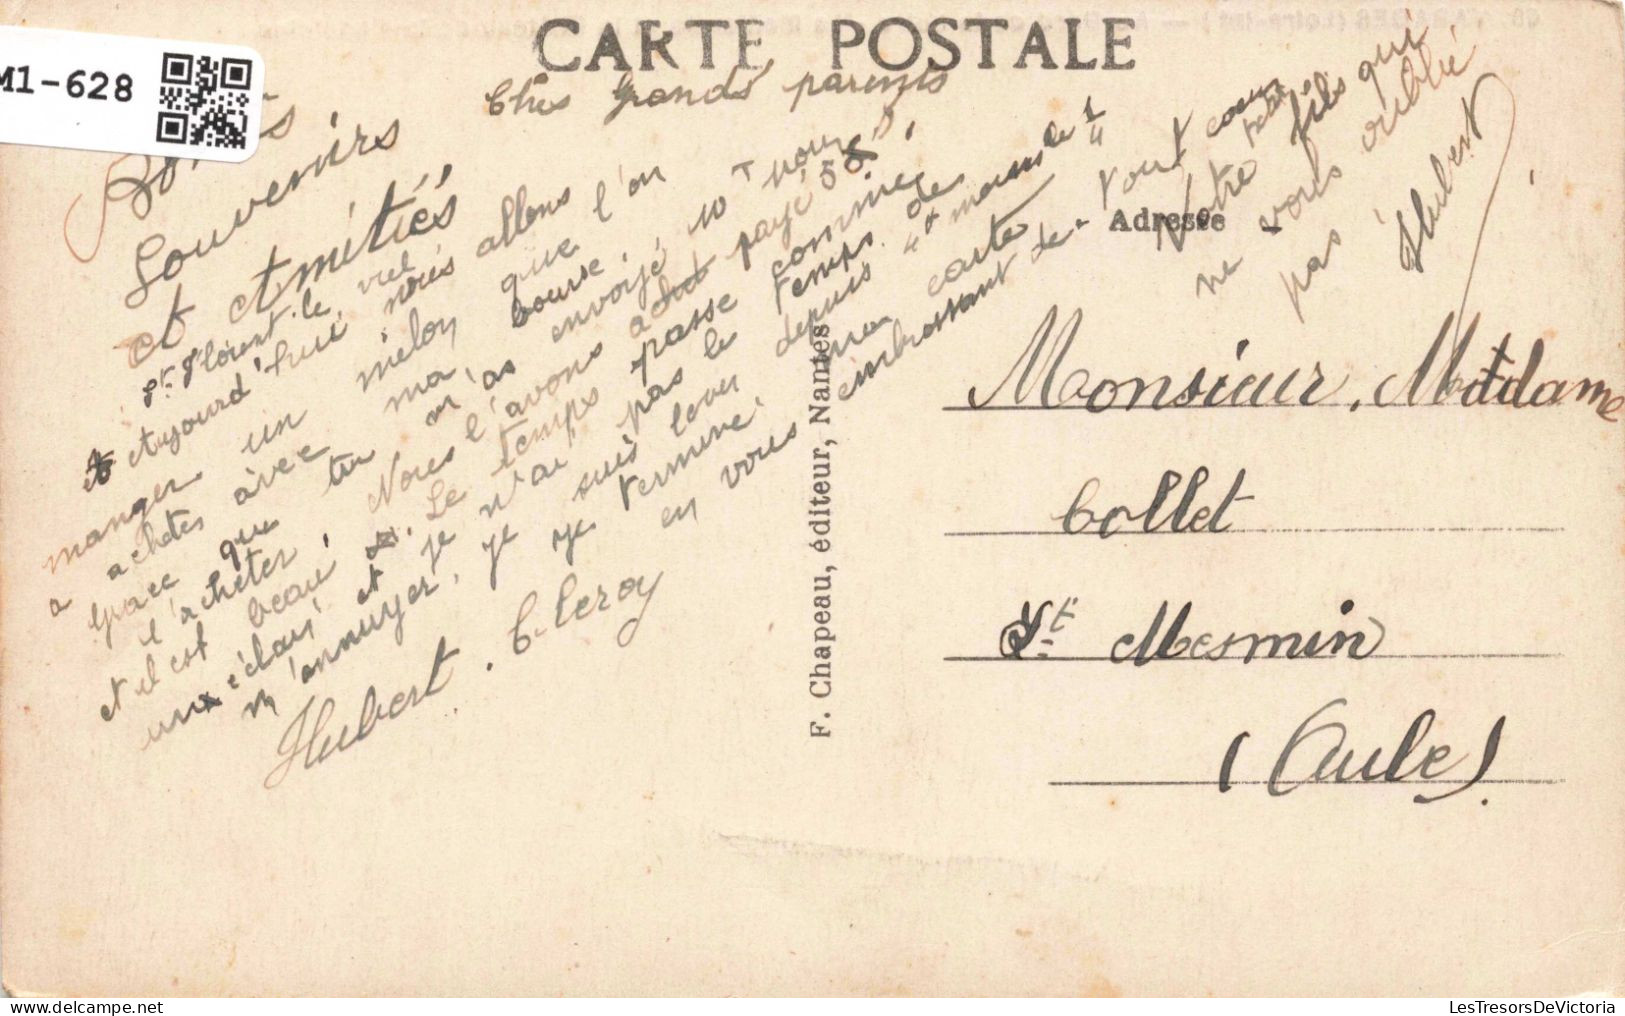 M1-628
CARTE POSTALE
Chers Grands parents
Bons
Souvenirs
et Amitiés
St. Florent. le viel
et Aujourd'hui nous allons
manger un melon que l'on
a achetés avec ma bourse.
Grace que tu m'as envoyé 10 F pour
l'acheter, Nous l'avons payé
et il est beau. Le temps passe comme
un éclair et je n'ai pas le temps de
m'annuyer, je suis lever depuis 4h moins le 1/4
je termine ma carte
en vous embrassant de tout coeur
Hubert. C. Leroy
Votre petit fils qui
ne vous oublié
pas Hubert
Adresse
Monsieur, Madame
Collet
St. Mesmin
(Aube).
F. Chapeau, éditeur, Nantes
LesTresorsDeVictoria